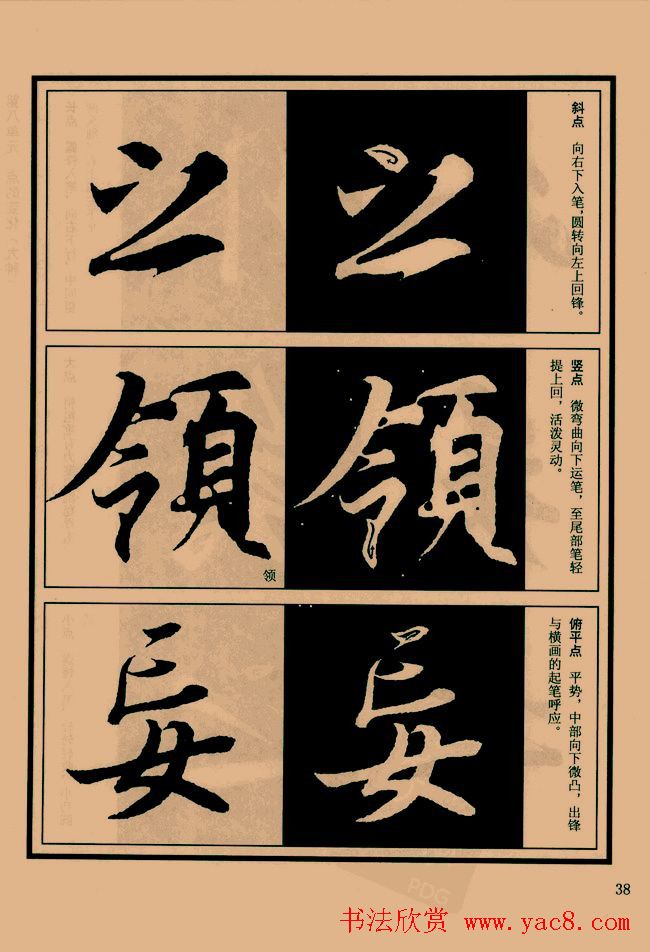 斜点　向右下入笔，圆转向左上回锋。
之
之
竖点　微弯曲向下运笔，至尾部笔轻
提上回，活泼灵动。
領
領
领
俯平点　平势，中部向下微凸，出锋
与横画的起笔呼应。
妄
妄
38
书法欣赏 www.yac8.com
PDG